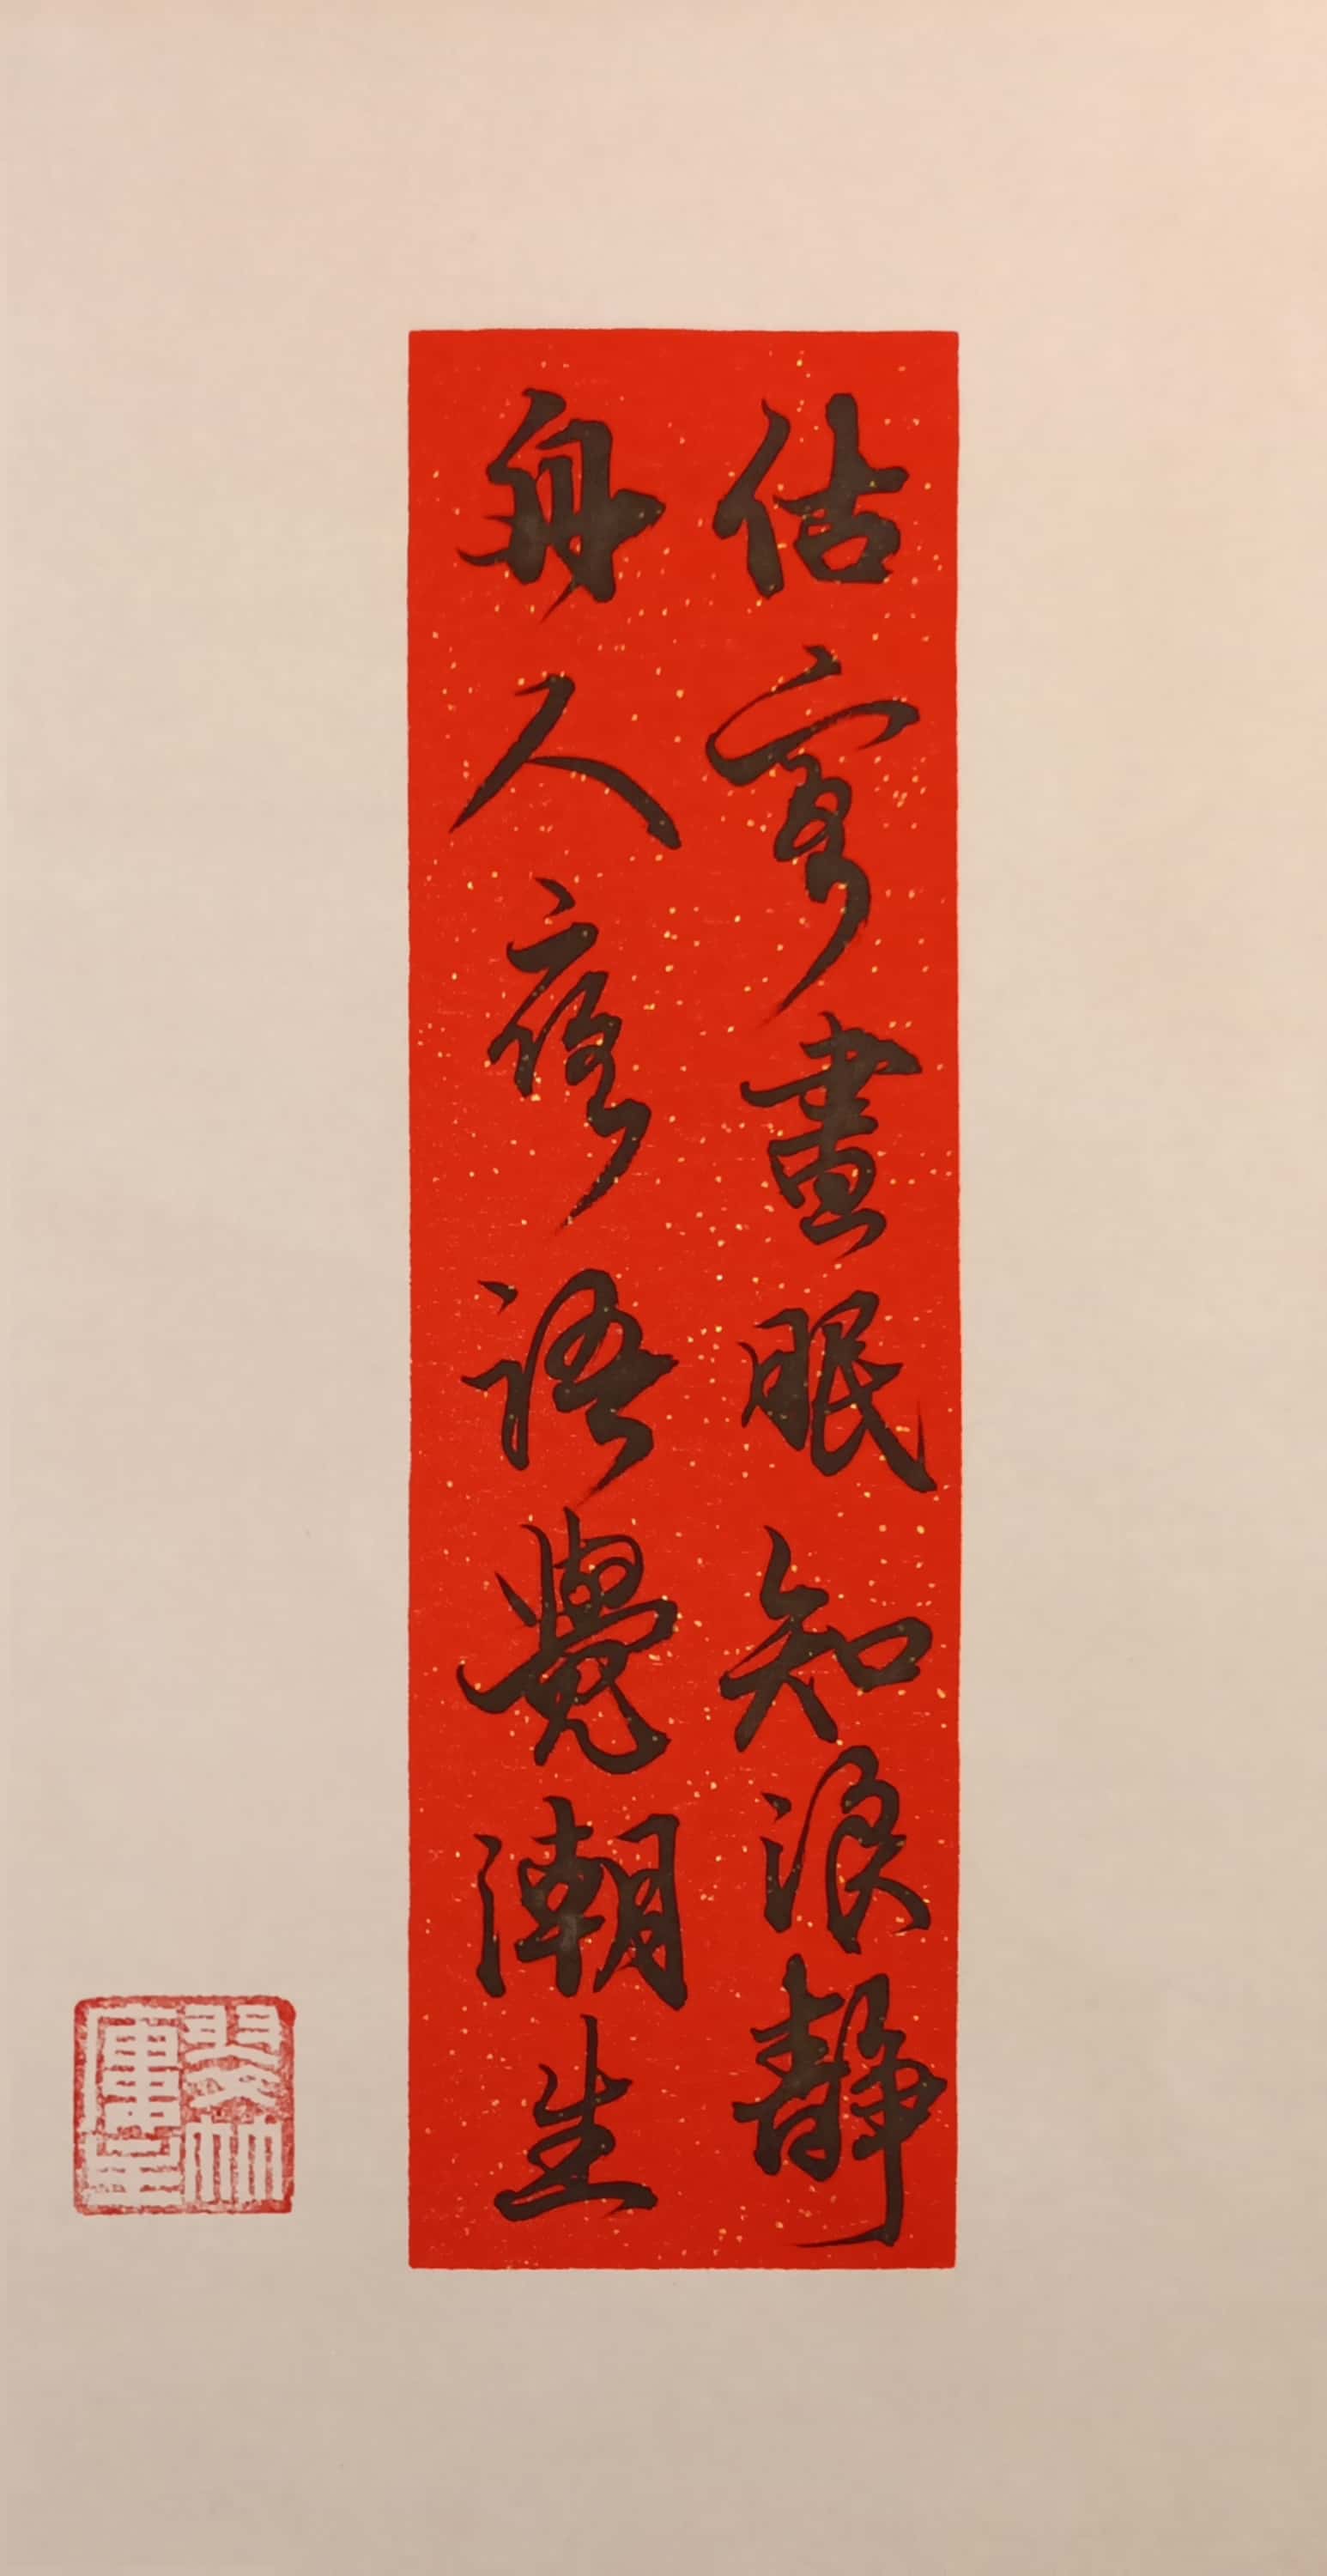 估客晝眠知浪靜
舟人夜語覺潮生